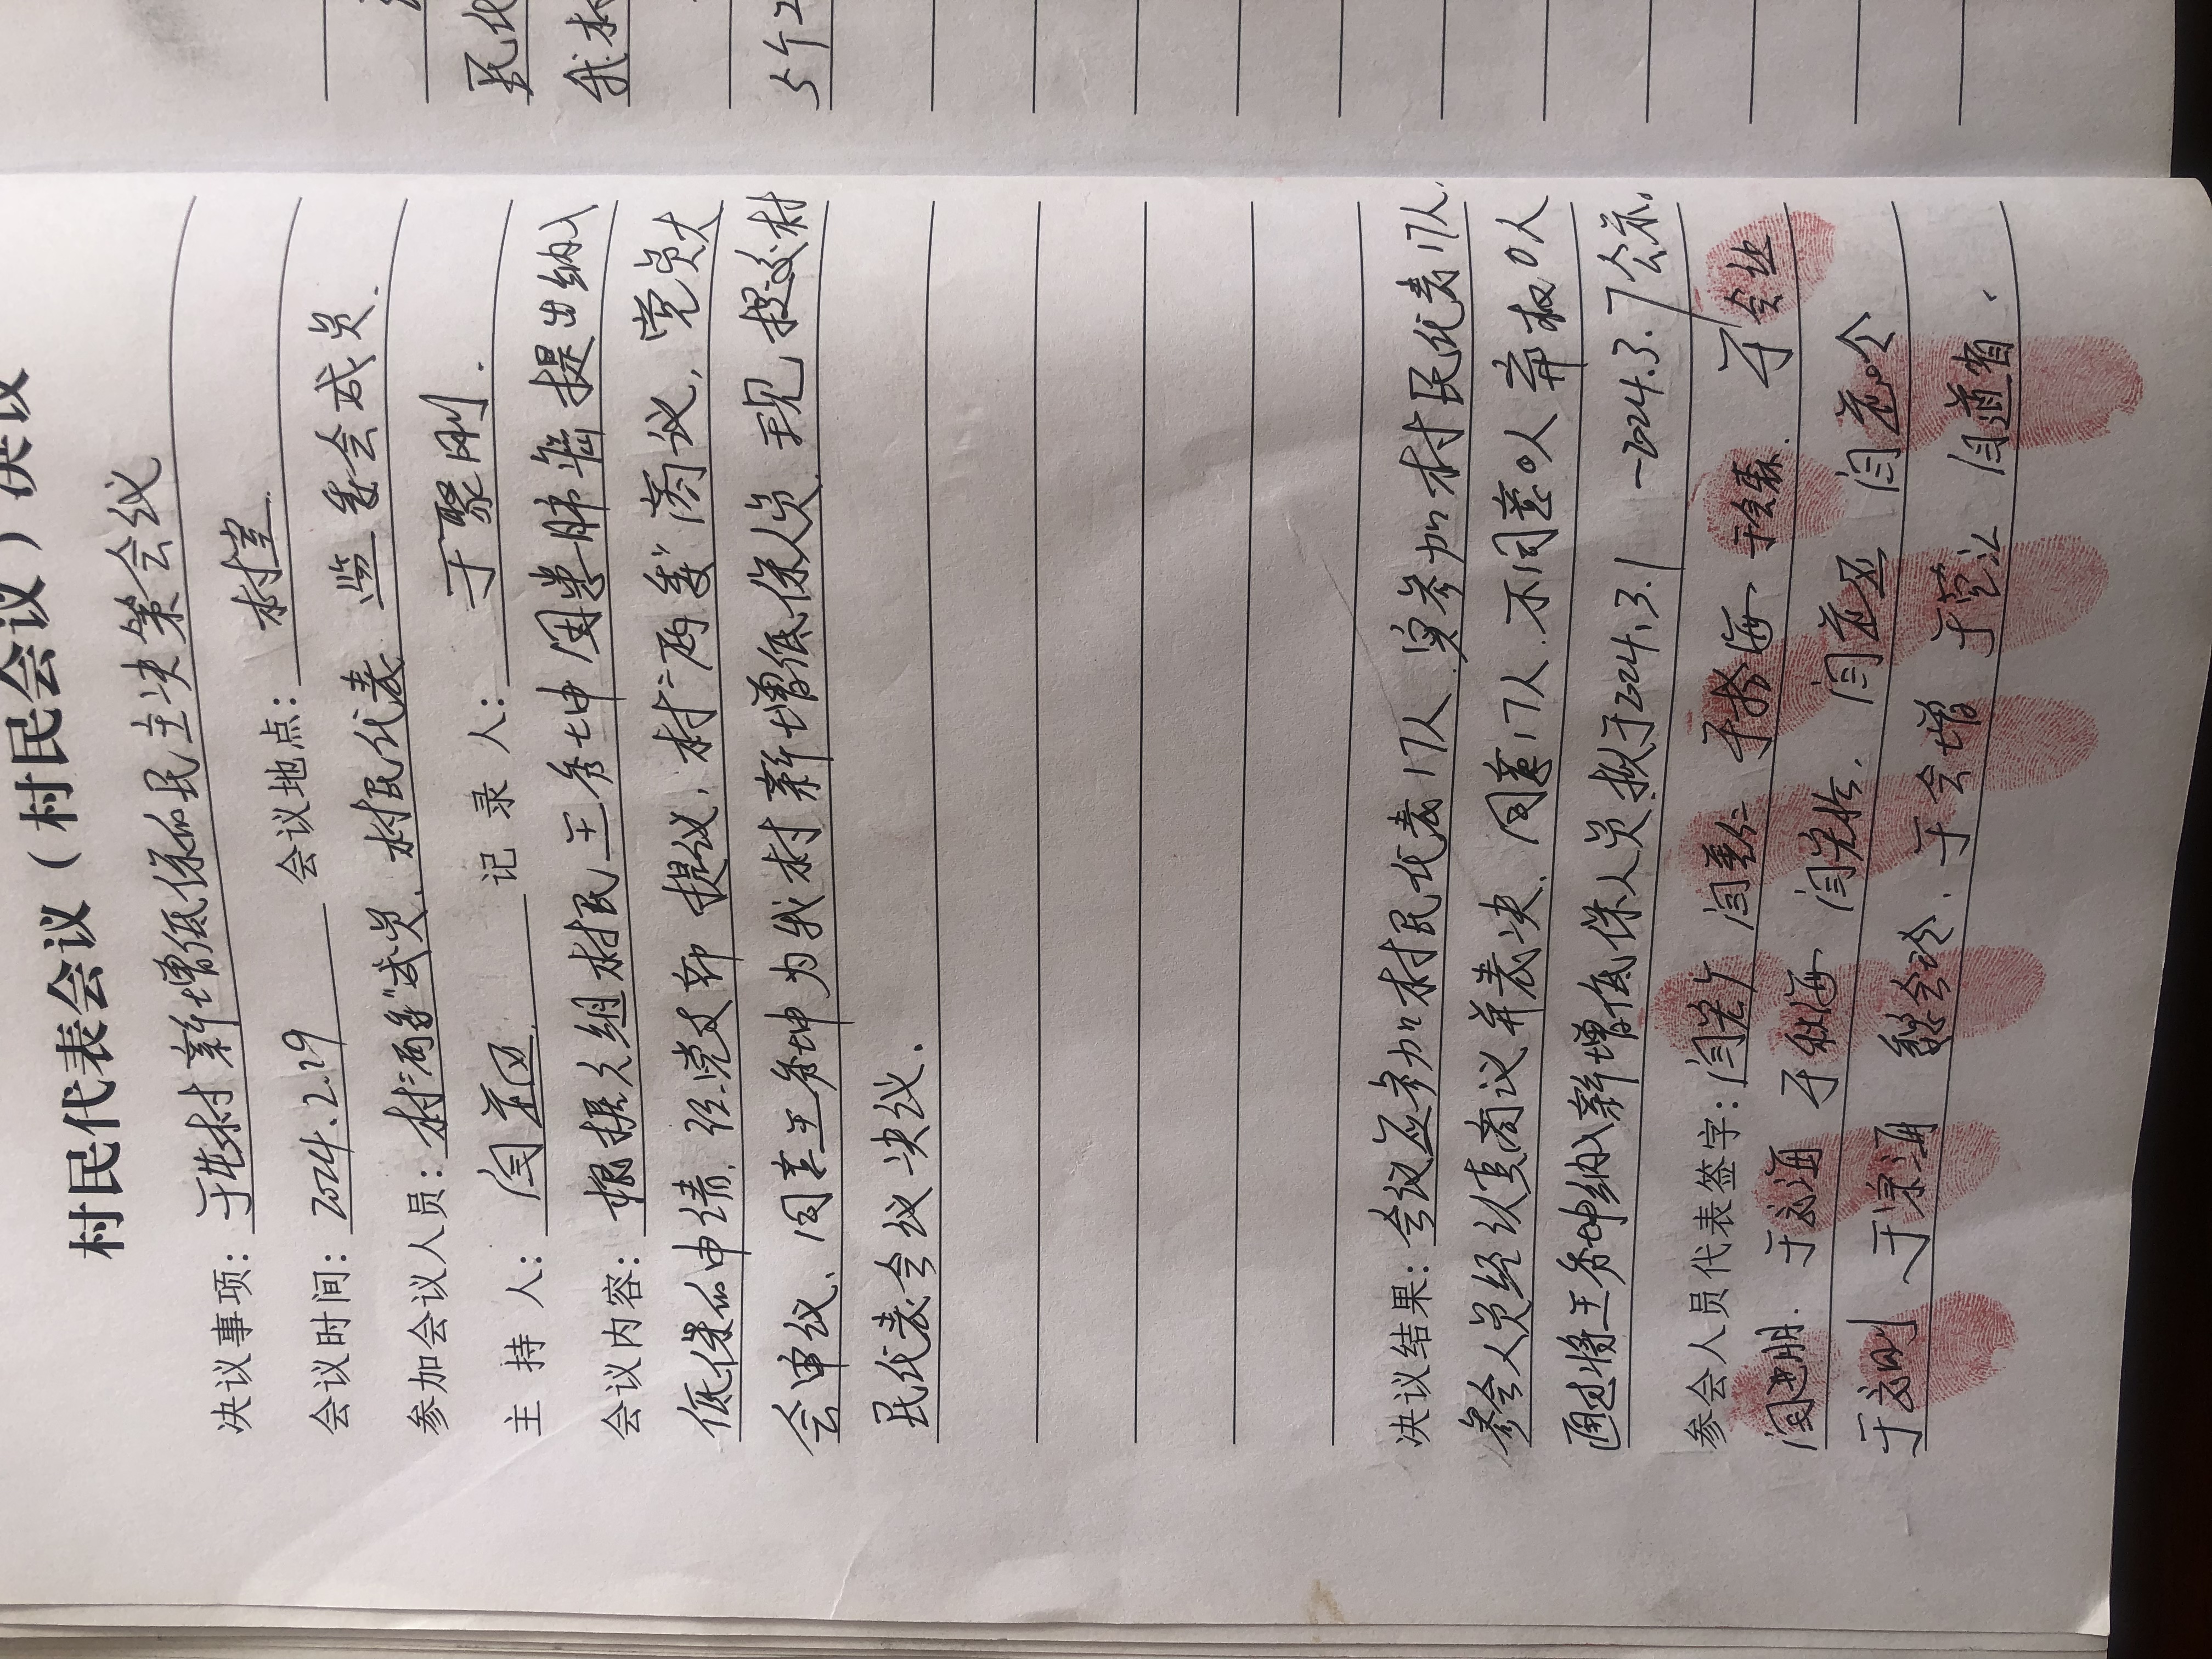 村民代表会议（村民会议）决议
决议事项：于屯村新增低保的民主决策会议
会议时间：2024.2.29 会议地点：村室.
参加会议人员：村"两委"成员、村民代表 监委会成员.
主 持 人：闫 记 录 人：于聚刚.
会议内容：根据 组村民王秀坤因患肺癌提出纳入
低保的申请，经党支部提议，村"两委"商议，党员大
会审议，同意王秀坤为我村新增低保人员 现提交村
民代表会议决议.
决议结果：会议应参加村民代表17人 实参加村民代表17人，
参会人员经认真商议并表决，同意17人.不同意0人 弃权0人
通过将王秀坤纳入新增低保人员拟于2024.3.1 -2024.3.7公示。
参会人员代表签字：闫 闫善仁 于 海 于会森. 于会
闫 朋. 于 海 于秋海 闫 闫 闫
于 刚 于宗海 魏会玲. 于会增 于 闫道省.
民代
我村
5个工